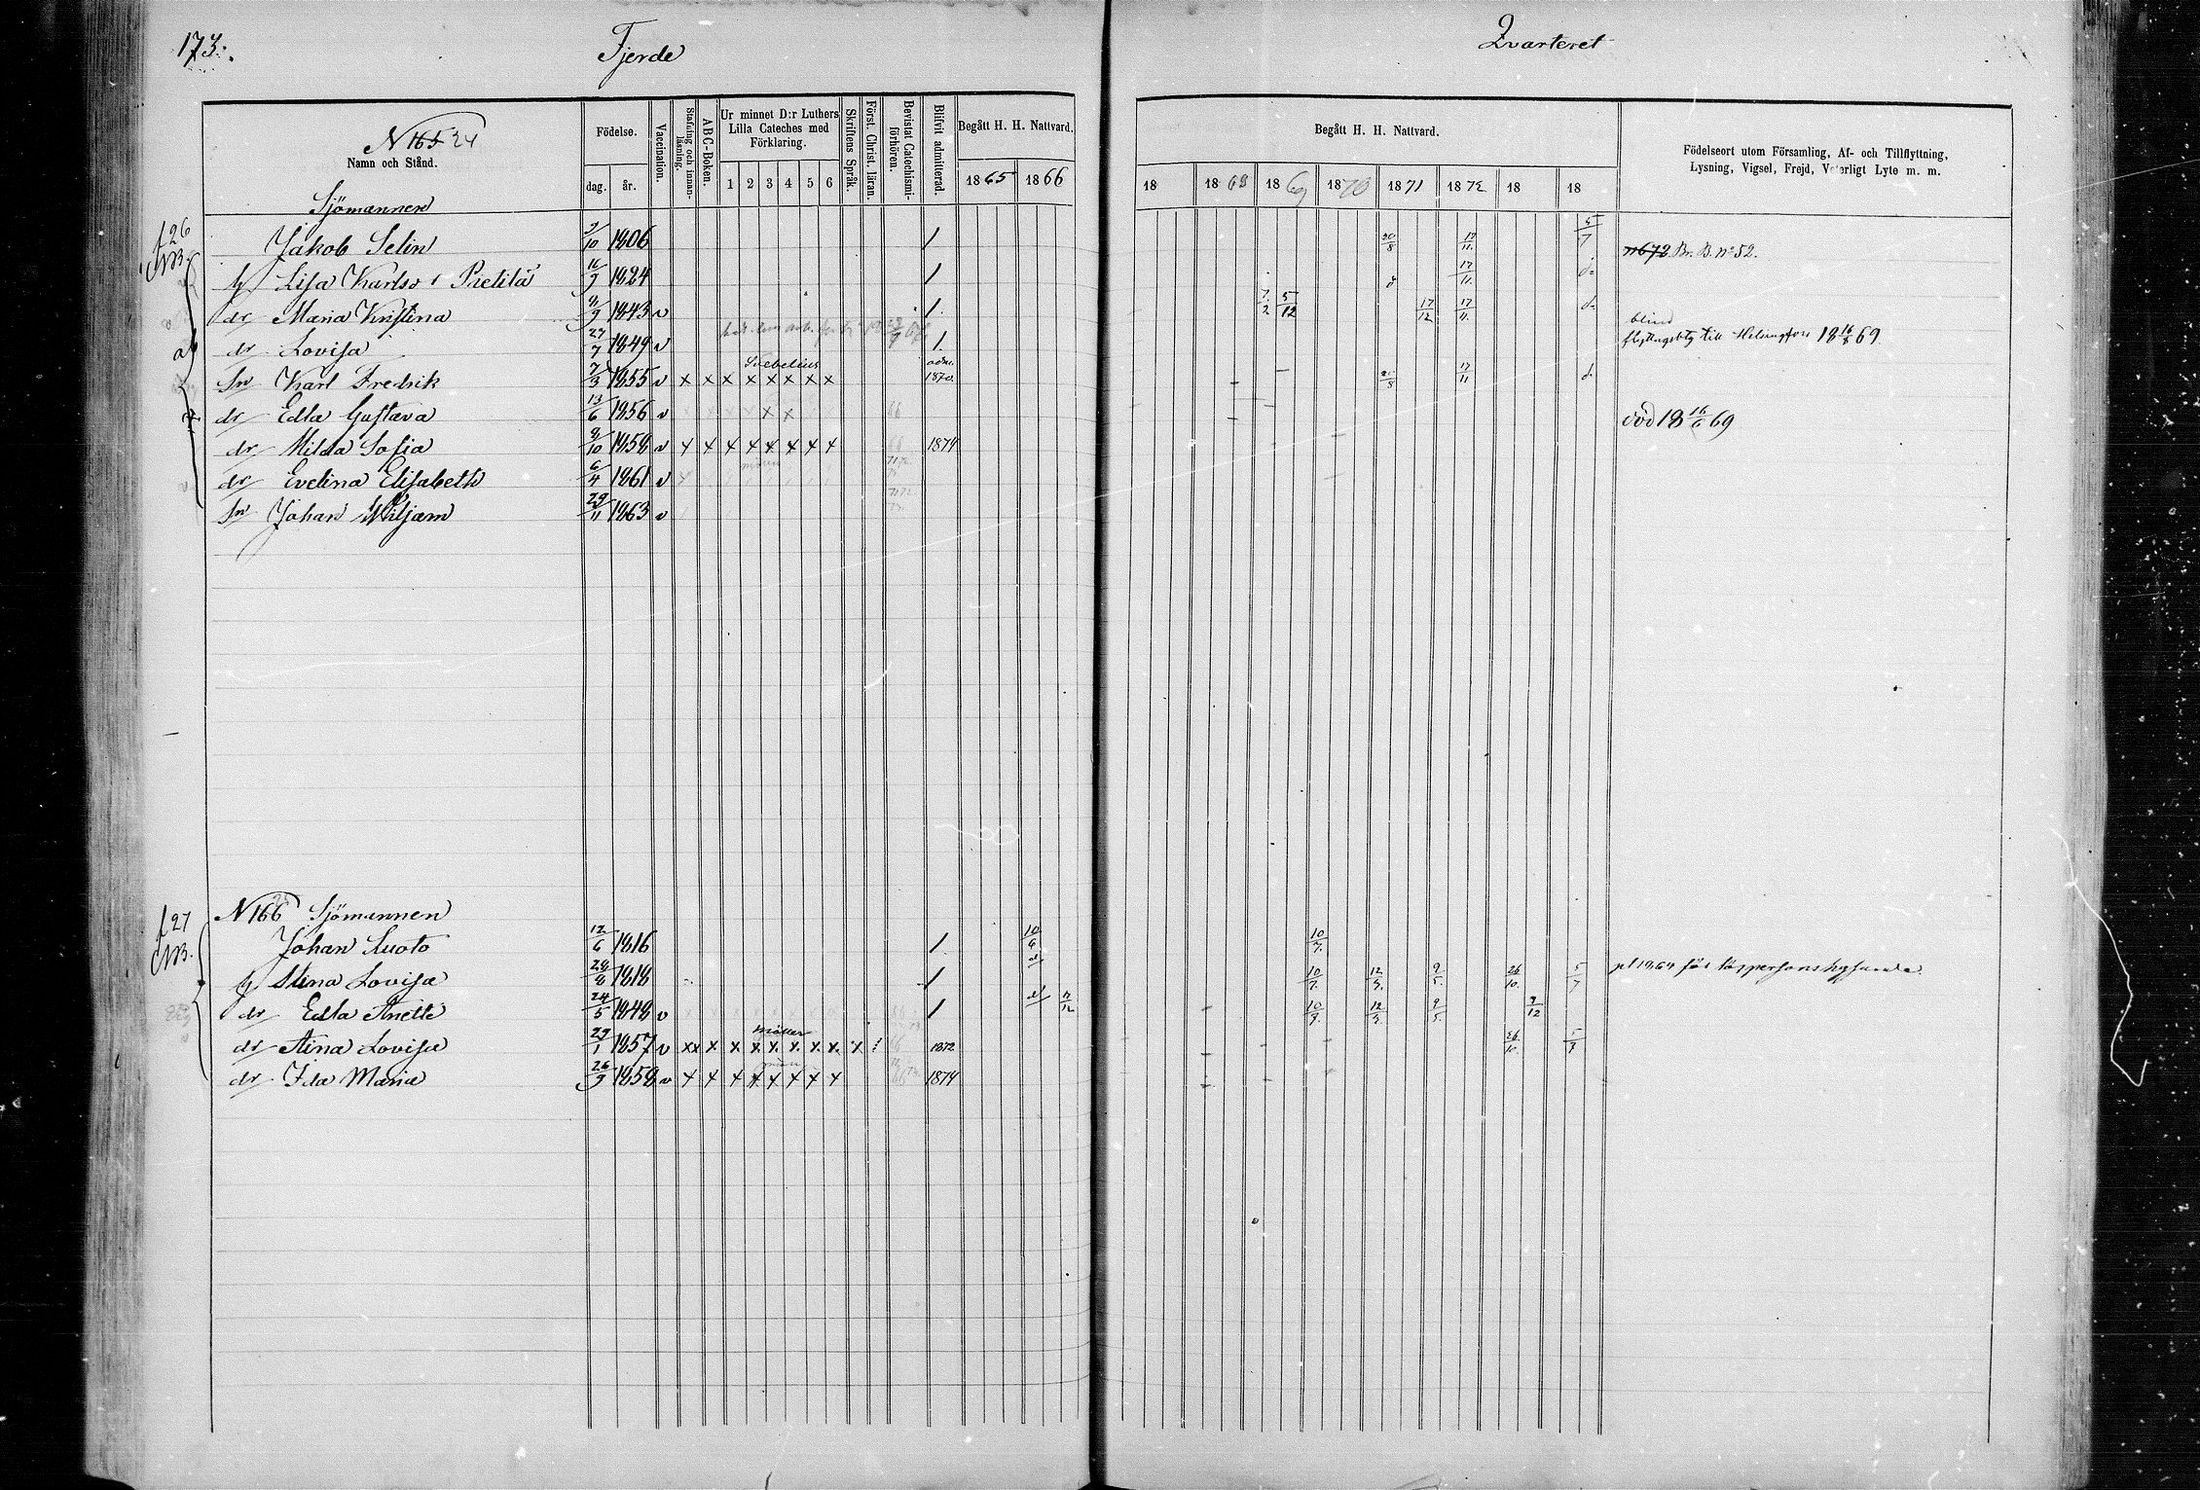 173.
Fjerde
Qvarteret
N 165 24
Namn och Stånd.
Födelse.
dag.
år.
Vaccination.
Stafning och innan-läsning.
ABC-Boken.
Ur minnet D:r Luthers
Lilla Cateches med
Förklaring.
1 2 3 4 5 6
Skriftens Språk.
Först. Christ. läran.
Bevistat Catechismi-förhören.
Blifvit admitterad.
Begått H. H. Nattvard.
1865 1866
Begått H. H. Nattvard.
18 1868 1869 1870 1871 1872 18 18
Födelseort utom Församling, Af- och Tillflyttning,
Lysning, Vigsel, Frejd, Veterligt Lyte m. m.
Sjömannen
f 26
NB.
Jakob Selin 9/10 1806 / 20/8 5/7 n 672 Br. B. no 52.
h Lisa Karlsd. 16/9 1824 / 17/11 d.
dr Maria Kristina 1843 v / 7/2 5/12 17/12 17/11 d. blind
dr Lovisa 27/7 1849 v / flyttngsbtg till Helsingfors 18 16/8 69.
Svebelius adm.
sn Karl Fredrik 7/3 1855 v x x x x x x x x 1870. 17/11 d.
dr Edla Gustava 13/6 1856 v x x död 18 16/6 69
dr Hilda Sofia 1858 v x x x x x x x x 1874
dr Evelina Elisabeth 6/4 1861 v
sn Johan Wiljam 29/11 1863 v
f 27
NB.
N 166 Sjömannen
Johan Luoto 12/6 1816 / 10/6 10/7.
h Stina Lovisa 28/8 1818 / 10/7. 9/5. 26/10. 5/7
dr Edla Anette 24/5 1848 v / 9/5. 9/12
Möller
dr Stina Lovisa 1857 v xx x x x x x x x x 1872 26/10.
dr Ida Maria 26/9 1858 v x x x x x x x x 1874